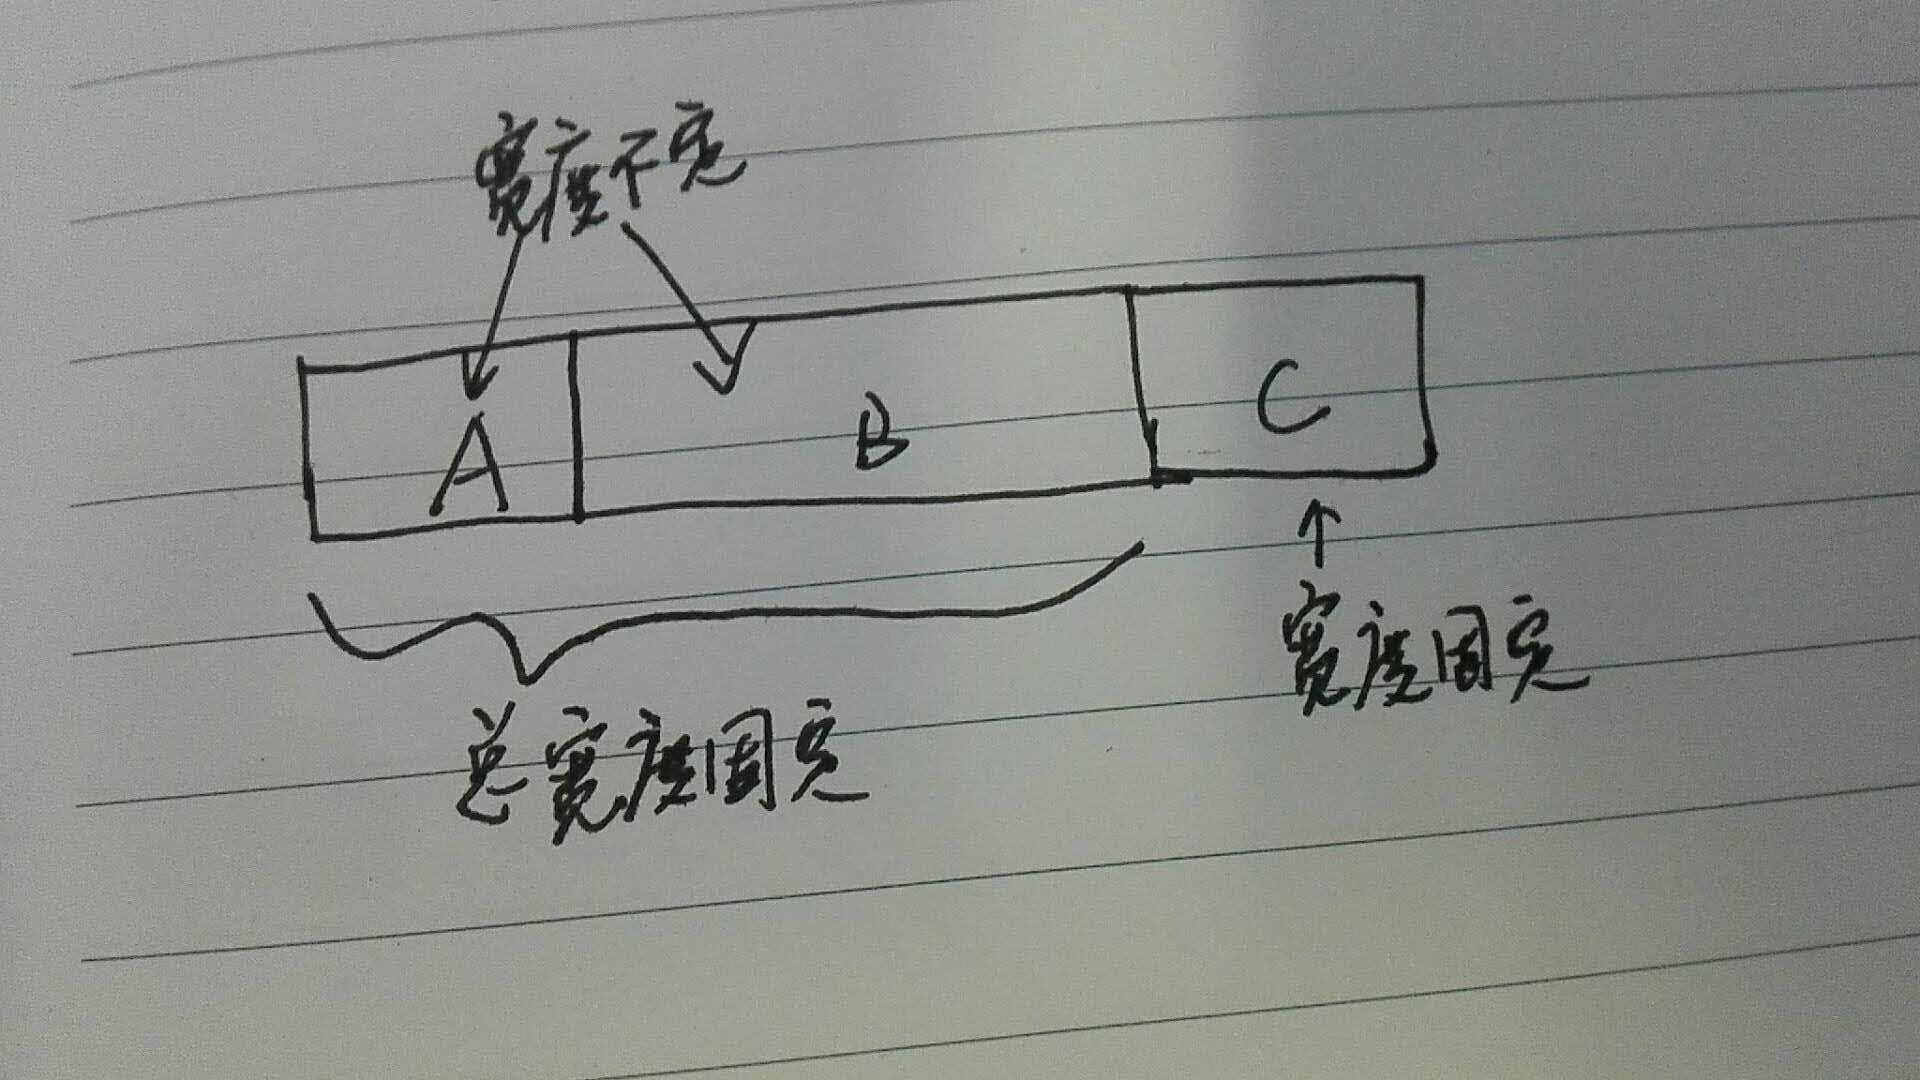 宽度不定
A
B
C
宽度固定
总宽度固定